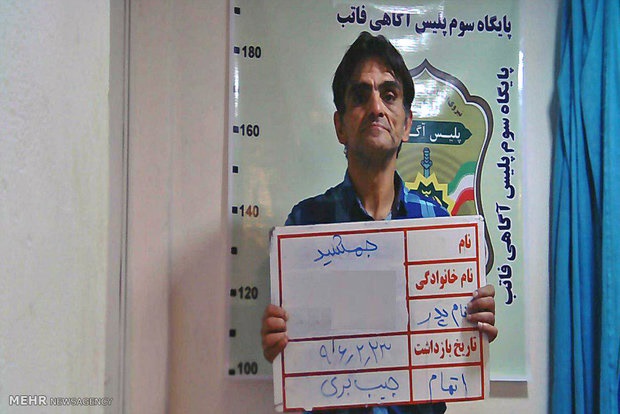 پایگاه سوم پلیس آگاهی فاتب
پایگاه سوم پلیس آگاهی فاتب
180
160
140
120
100
نیروی
پلیس آگا
نام جمشید
نام خانوادگی
نام پدر
تاریخ بازداشت ۹۶،۲،۲۳
اتهام جیب بری
MEHR NEWSAGENCY